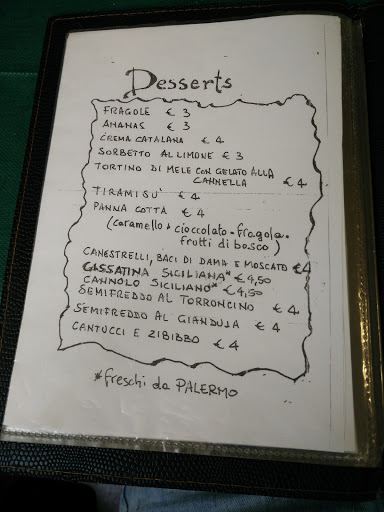 Desserts
FRAGOLE € 3
ANANAS € 3
CREMA CATALANA € 4
SORBETTO AL LIMONE € 3
TORTINO DI MELE CON GELATO ALLA
CANNELLA € 4
TIRAMISU' € 4
PANNA COTTA € 4
(caramello - cioccolato - fragola -
frutti di bosco)
CANESTRELLI, BACI DI DAMA E MOSCATO € 4
CASSATINA SICILIANA* € 4,50
CANNOLO SICILIANO* € 4,50
SEMIFREDDO AL TORRONCINO € 4
SEMIFREDDO AL GIANDUJA € 4
CANTUCCI E ZIBIBBO € 4
*freschi da PALERMO